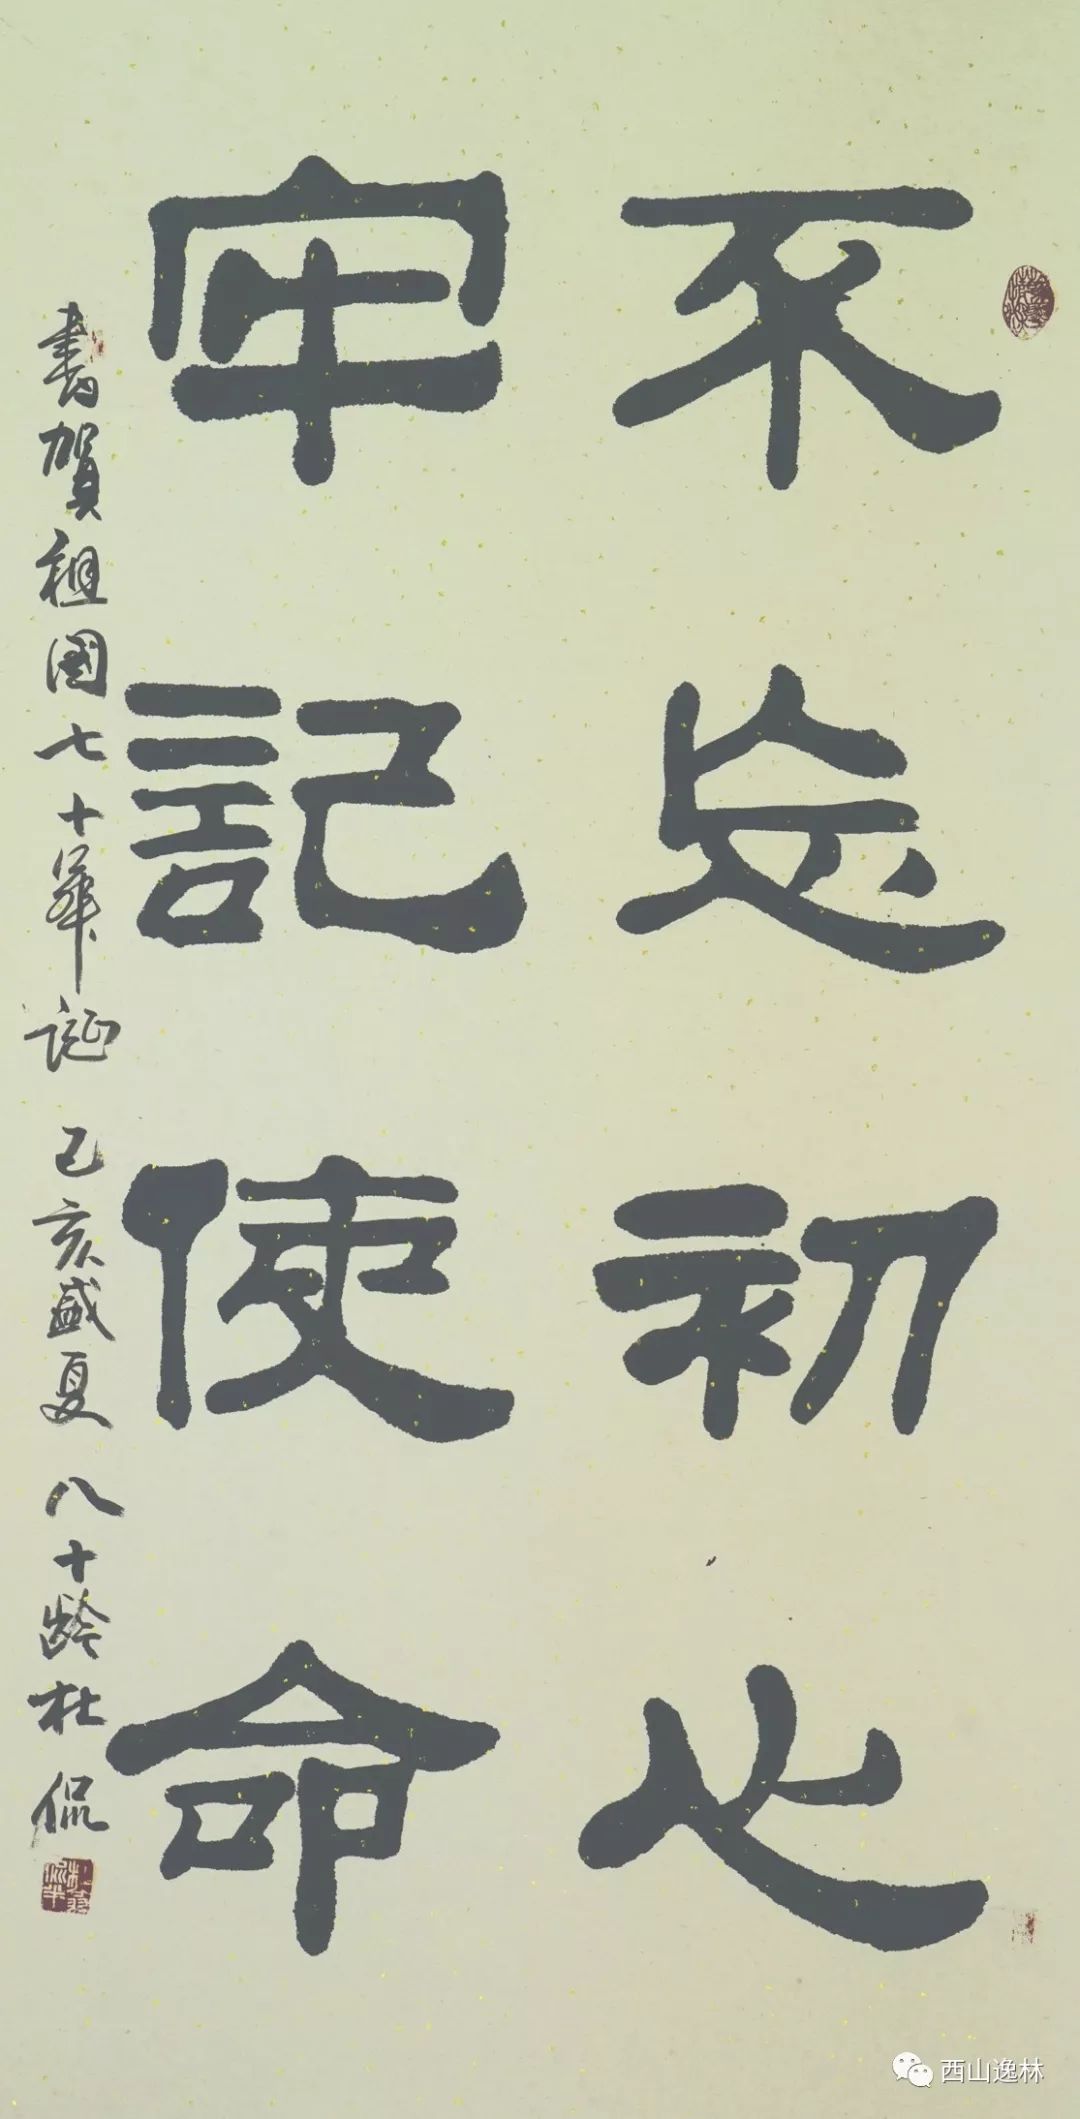 不忘初心
牢記使命
書賀祖國七十華誕 己亥盛夏 八十龄杜侃
西山逸林